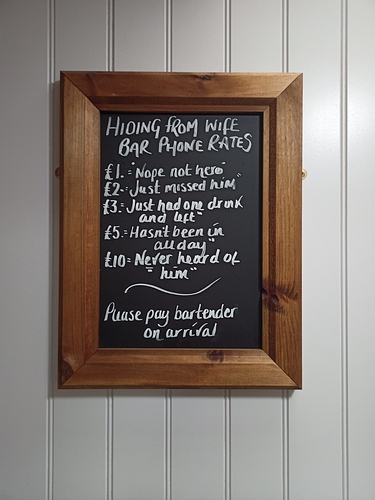 HIDING FROM WIFE
BAR PHONE RATES
£1.="Nope not here"
£2-"Just missed him"
£3.=Just had one drink
and left"
£5.=Hasn't been in
all day"
£10=Never heard of
"him"
Please pay bartender
on arrival